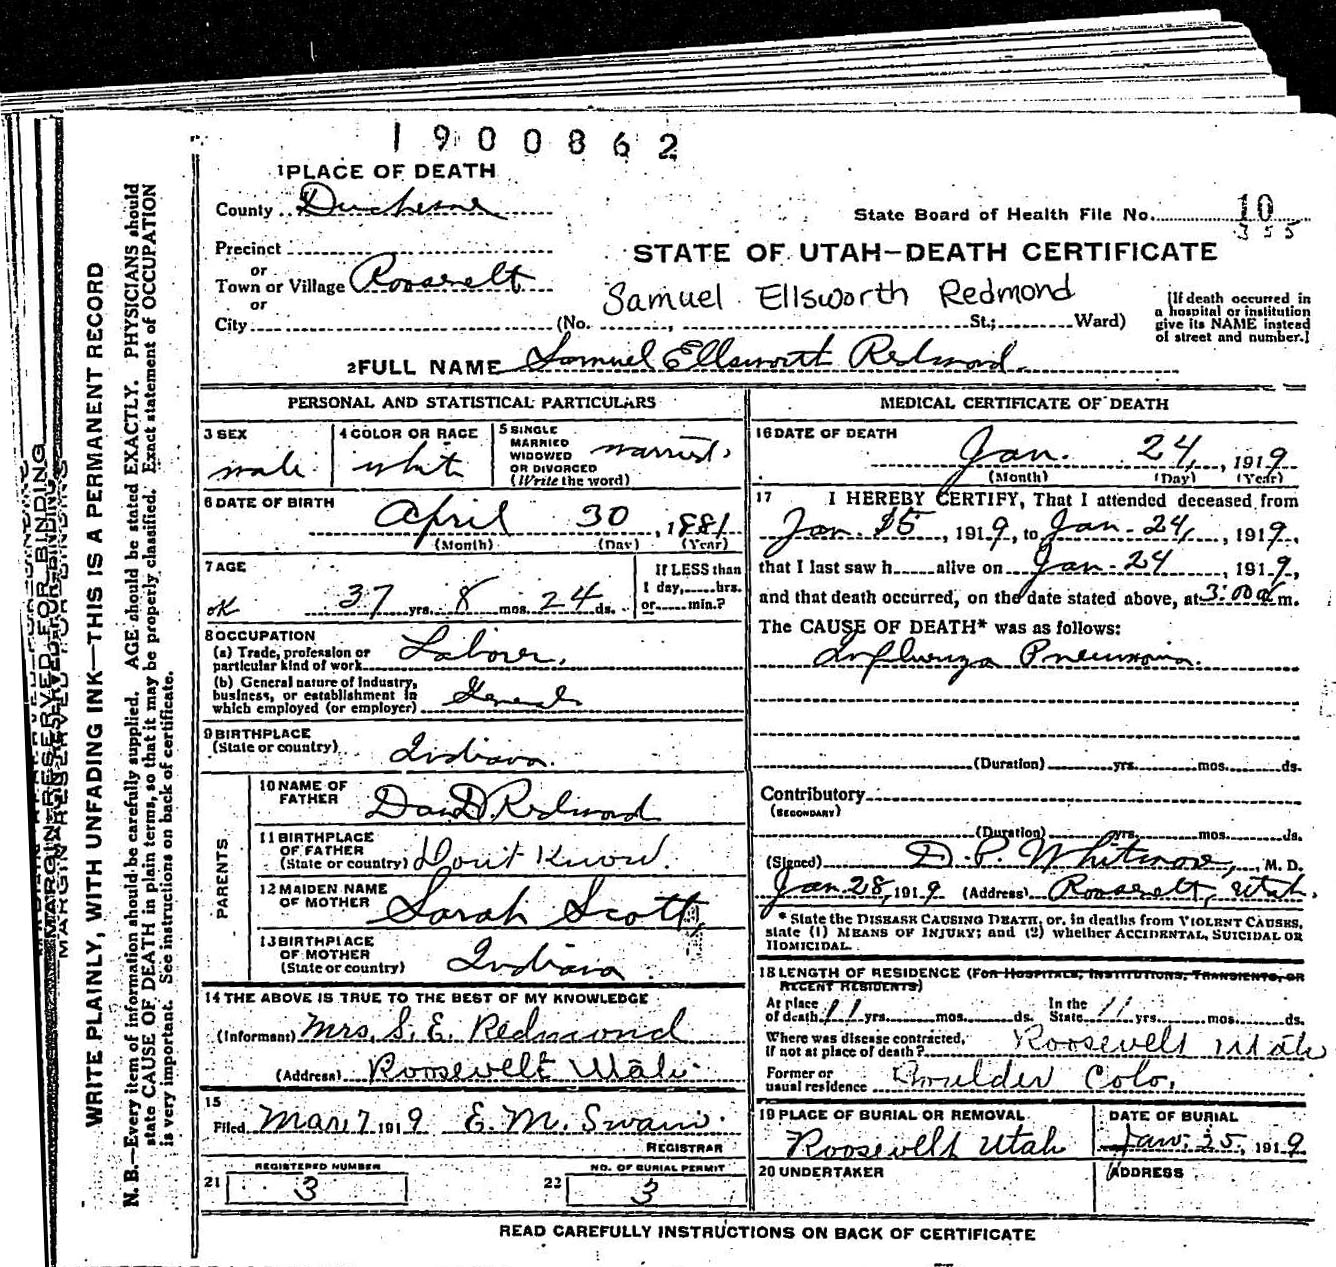 1900862
1 PLACE OF DEATH
County Duchesne
State Board of Health File No. 10
355
Precinct
or
Town or Village Roosevelt
or
City (No. , St.; Ward)
STATE OF UTAH-DEATH CERTIFICATE
Samuel Ellsworth Redmond
[If death occurred in
a hospital or institution
give its NAME instead
of street and number.]
2 FULL NAME Samuel Ellsworth Redmond.
PERSONAL AND STATISTICAL PARTICULARS
3 SEX
male
4 COLOR OR RACE
white
5 SINGLE
MARRIED
WIDOWED
OR DIVORCED
(Write the word)
married.
6 DATE OF BIRTH
April 30, 1881
(Month) (Day) (Year)
7 AGE
OK 37 yrs. 8 mos. 24 ds.
If LESS than
1 day, hrs.
or min.?
8 OCCUPATION
(a) Trade, profession or
particular kind of work Laborer.
(b) General nature of Industry,
business, or establishment in
which employed (or employer) General
9 BIRTHPLACE
(State or country) Indiana.
PARENTS
10 NAME OF
FATHER Dan D. Redmond
11 BIRTHPLACE
OF FATHER
(State or country) Dont Know.
12 MAIDEN NAME
OF MOTHER Sarah Scott,
13 BIRTHPLACE
OF MOTHER
(State or country) Indiana
14 THE ABOVE IS TRUE TO THE BEST OF MY KNOWLEDGE
(Informant) Mrs. S. E. Redmond
(Address) Roosevelt Utah.
15
Filed Mar. 7 1919 E. M. Swain.
REGISTRAR
21 REGISTERED NUMBER
3
22 NO. OF BURIAL PERMIT
3
MEDICAL CERTIFICATE OF DEATH
16 DATE OF DEATH
Jan. 24, 1919
(Month) (Day) (Year)
17 I HEREBY CERTIFY, That I attended deceased from
Jan. 15, 1919, to Jan. 24, 1919,
that I last saw h alive on Jan. 24, 1919,
and that death occurred, on the date stated above, at 3:00 a m.
The CAUSE OF DEATH* was as follows:
Influenza Pneumonia.
(Duration) yrs. mos. ds.
Contributory
(SECONDARY)
(Duration) yrs. mos. ds.
(Signed) D. P. Whitmore, M. D.
Jan 28, 1919 (Address) Roosevelt, Utah.
* State the DISEASE CAUSING DEATH, or, in deaths from VIOLENT CAUSES,
state (1) MEANS OF INJURY; and (2) whether ACCIDENTAL, SUICIDAL OR
HOMICIDAL.
18 LENGTH OF RESIDENCE (FOR HOSPITALS, INSTITUTIONS, TRANSIENTS, OR
RECENT RESIDENTS)
At place
of death 11 yrs. mos. ds.
In the
State 11 yrs. mos. ds.
Where was disease contracted,
if not at place of death? Roosevelt Utah
Former or
usual residence Boulder Colo.
19 PLACE OF BURIAL OR REMOVAL
Roosevelt Utah
DATE OF BURIAL
Jan. 25, 1919
20 UNDERTAKER
ADDRESS
READ CAREFULLY INSTRUCTIONS ON BACK OF CERTIFICATE
MARGIN RESERVED FOR BINDING
WRITE PLAINLY, WITH UNFADING INK—THIS IS A PERMANENT RECORD
N. B.—Every item of information should be carefully supplied. AGE should be stated EXACTLY. PHYSICIANS should
state CAUSE OF DEATH in plain terms, so that it may be properly classified. Exact statement of OCCUPATION
is very important. See instructions on back of certificate.